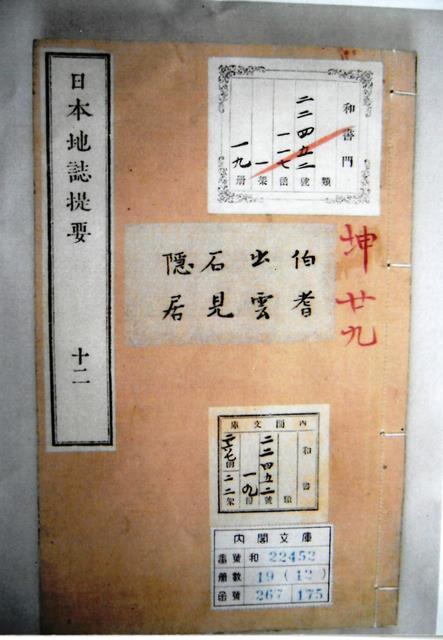 日本地誌提要 十二
和書門
類
二二四五二號
一一七函
一架
一九册
坤廿九
伯耆
出雲
石見
隱居
内閣文庫
和書
類
二二四五二號
一九册
二六七函
二二架
内閣文庫
番號 和 22452
册數 19 (12)
函號 267 175